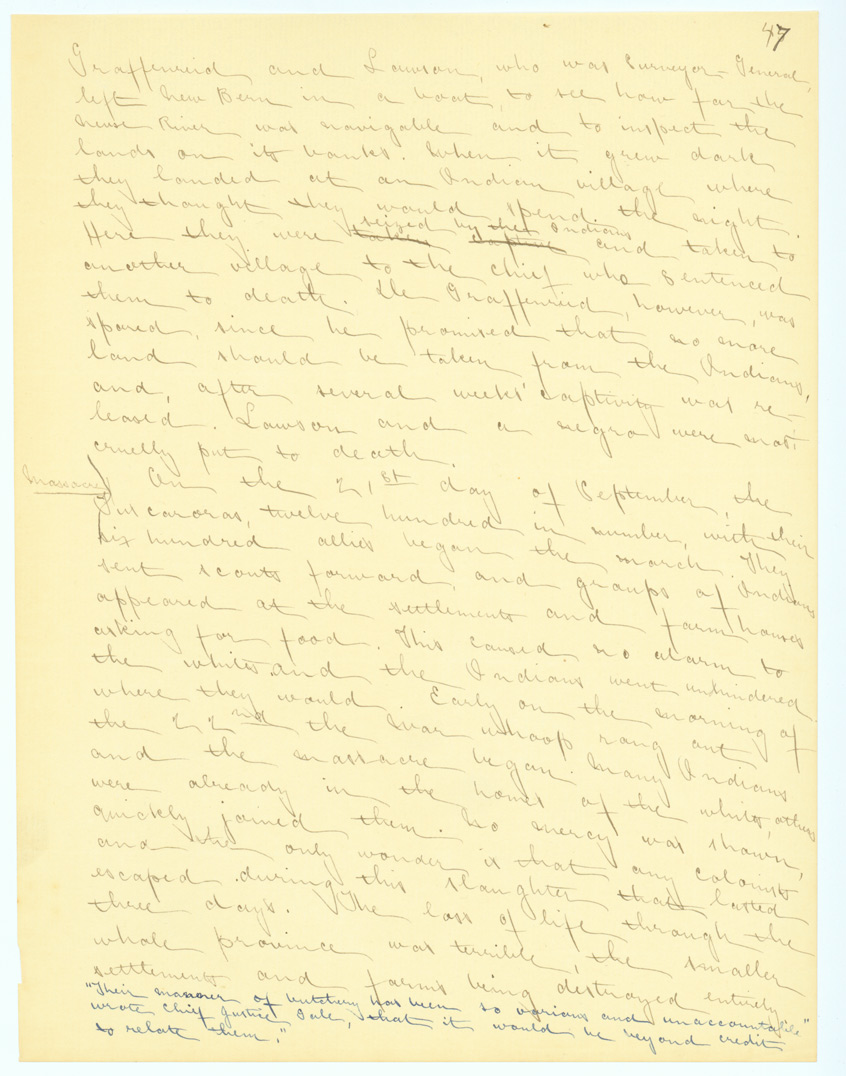 47
Graffenreid and Lawson, who was Surveyor-General,
left New Bern in a boat, to see how far the
Neuse River was navigable and to inspect the
lands on its banks. When it grew dark
they landed at an Indian village where
they thought they would spend the night.
seized by the Indians
Here they were taken captive and taken to
another village to the chief who sentenced
them to death. De Graffenreid, however, was
spared, since he promised that no more
land should be taken from the Indians,
and, after several weeks' captivity was re-
leased. Lawson and a negro were most
cruelly put to death.
Massacre) On the 21st day of September, the
Tuscaroras, twelve hundred in number, with their
six hundred allies began the march. They
sent scouts forward, and groups of Indians
appeared at the settlements and farm houses
asking for food. This caused no alarm to
the whites and the Indians went unhindered
where they would. Early on the morning of
the 22nd the war whoop rang out
and the massacre began. Many Indians
were already in the homes of the whites, others
quickly joined them. No mercy was shown,
and the only wonder is that any colonists
escaped during this slaughter that lasted
three days. The loss of life through the
whole province was terrible, the smaller
settlements and farms being destroyed entirely
"Their manner of butchery has been so various and unaccountable"
wrote Chief Justice Gale, "that it would be beyond credit
to relate them."